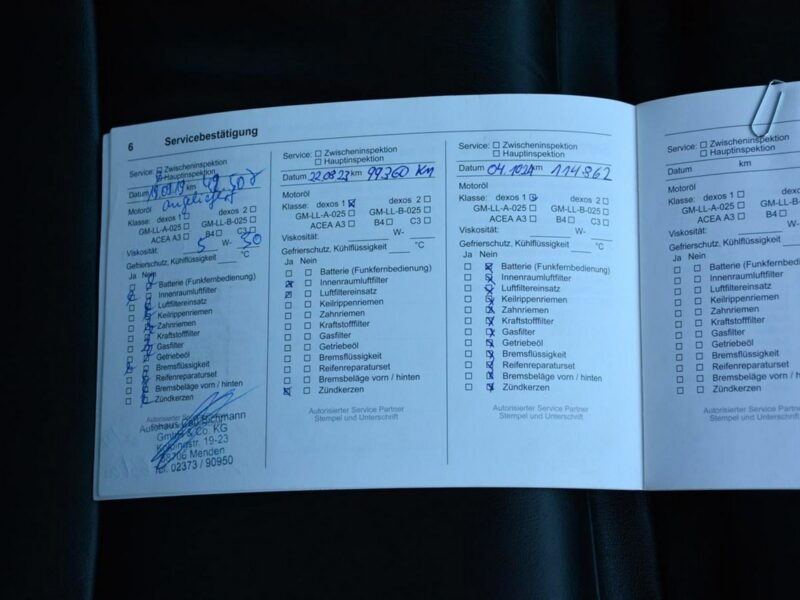 6 Servicebestätigung
Service: Zwischeninspektion
Hauptinspektion
Datum 19.09.19 km
Motoröl
Klasse: dexos 1 dexos 2
GM-LL-A-025 GM-LL-B-025
ACEA A3 B4 C3
Viskosität: 5 W- 30
Gefrierschutz, Kühlflüssigkeit °C
Ja Nein
Batterie (Funkfernbedienung)
Innenraumluftfilter
Luftfiltereinsatz
Keilrippenriemen
Zahnriemen
Kraftstofffilter
Gasfilter
Getriebeöl
Bremsflüssigkeit
Reifenreparaturset
Bremsbeläge vorn / hinten
Zündkerzen
Autorisierter Service
Autohaus
GmbH & Co. KG
19-23
Menden
Tel. 02373 / 90950
Service: Zwischeninspektion
Hauptinspektion
Datum 22.08.23 km 99360 km
Motoröl
Klasse: dexos 1 dexos 2
GM-LL-A-025 GM-LL-B-025
ACEA A3 B4 C3
Viskosität: W-
Gefrierschutz, Kühlflüssigkeit °C
Ja Nein
Batterie (Funkfernbedienung)
Innenraumluftfilter
Luftfiltereinsatz
Keilrippenriemen
Zahnriemen
Kraftstofffilter
Gasfilter
Getriebeöl
Bremsflüssigkeit
Reifenreparaturset
Bremsbeläge vorn / hinten
Zündkerzen
Autorisierter Service Partner
Stempel und Unterschrift
Service: Zwischeninspektion
Hauptinspektion
Datum 04.1024 km 114862
Motoröl
Klasse: dexos 1 dexos 2
GM-LL-A-025 GM-LL-B-025
ACEA A3 B4 C3
Viskosität: W-
Gefrierschutz, Kühlflüssigkeit °C
Ja Nein
Batterie (Funkfernbedienung)
Innenraumluftfilter
Luftfiltereinsatz
Keilrippenriemen
Zahnriemen
Kraftstofffilter
Gasfilter
Getriebeöl
Bremsflüssigkeit
Reifenreparaturset
Bremsbeläge vorn / hinten
Zündkerzen
Autorisierter Service Partner
Stempel und Unterschrift
Service: Zwischeninspektion
Hauptinspektion
Datum km
Motoröl
Klasse: dexos 1 dexos 2
GM-LL-A-025 GM-LL-B-025
ACEA A3 B4 C3
Viskosität: W-
Gefrierschutz, Kühlflüssigkeit
Ja Nein
Batterie (Funkfernbedienung)
Innenraumluftfilter
Luftfiltereinsatz
Keilrippenriemen
Zahnriemen
Kraftstofffilter
Gasfilter
Getriebeöl
Bremsflüssigkeit
Reifenreparaturset
Bremsbeläge vorn / hinten
Zündkerzen
Autorisierter Service Partner
Stempel und Unterschrift